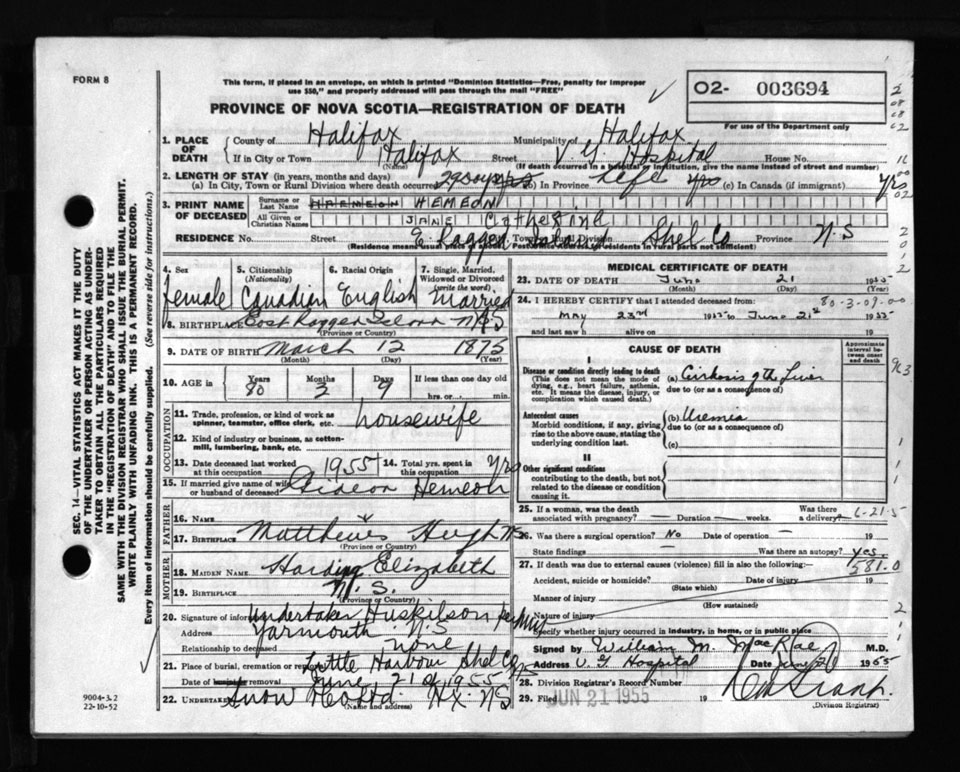 FORM 8
This form, if placed in an envelope, on which is printed "Dominion Statistics—Free, penalty for improper
use $50," and properly addressed will pass through the mail "FREE"
PROVINCE OF NOVA SCOTIA—REGISTRATION OF DEATH
O2- 003694
For use of the Department only
1. PLACE OF DEATH { County of Halifax Municipality of Halifax
If in City or Town Halifax Street V. G. Hospital House No.
(Name) (If death occurred in a hospital or institution, give the name instead of street and number)
2. LENGTH OF STAY (in years, months and days)
(a) In City, Town or Rural Division where death occurred 29 days (b) In Province Life yrs (c) In Canada (if immigrant) yrs
3. PRINT NAME OF DECEASED { Surname or Last Name HARMEON HEMEON
All Given or Christian Names JANE Catherine
RESIDENCE No. Street E. Ragged Island Town or Rural Division Shel Co Province N.S
(Residence means usual place of abode. Post Office address for residents in rural parts not sufficient)
4. Sex female
5. Citizenship (Nationality) Canadian
6. Racial Origin English
7. Single, Married, Widowed or Divorced (write the word) Married
8. BIRTHPLACE East Ragged Island NS
(Province or Country)
9. DATE OF BIRTH March 12 1875
(Month) (Day) (Year)
10. AGE in Years 80 Months 3 Days 9 If less than one day old hrs. or min.
OCCUPATION
11. Trade, profession, or kind of work as spinner, teamster, office clerk, etc. housewife
12. Kind of industry or business, as cotton-mill, lumbering, bank, etc.
13. Date deceased last worked at this occupation 1955 14. Total yrs. spent in this occupation yrs
15. If married give name of wife or husband of deceased Gideon Hemeon
FATHER
16. NAME Matthews Hugh
17. BIRTHPLACE NS
(Province or Country)
MOTHER
18. MAIDEN NAME Harding Elizabeth
19. BIRTHPLACE N. S.
(Province or Country)
20. Signature of informant Undertaker Huskilson
Address Yarmouth NS
Relationship to deceased none
21. Place of burial, cremation or removal Little Harbour Shel Co NS
Date of burial or removal June 21 of 1955
22. UNDERTAKER Snow & Co Ltd Hx NS
(Name and address)
MEDICAL CERTIFICATE OF DEATH
23. DATE OF DEATH June 21 1955
(Month) (Day) (Year)
24. I HEREBY CERTIFY that I attended deceased from: 80-3-09-00
MAY 23rd 1955 to June 21st 1955
and last saw h alive on 19
CAUSE OF DEATH
Approximate interval between onset and death
I
Disease or condition directly leading to death
(This does not mean the mode of dying, e.g., heart failure, asthenia, etc. It means the disease, injury, or complication which caused death.)
(a) Cirrhosis of the Liver
due to (or as a consequence of)
Antecedent causes
Morbid conditions, if any, giving rise to the above cause, stating the underlying condition last.
(b) Uremia
due to (or as a consequence of)
(c)
II
Other significant conditions
contributing to the death, but not related to the disease or condition causing it.
25. If a woman, was the death associated with pregnancy? — Duration — weeks. Was there a delivery? 6-21-5
26. Was there a surgical operation? No Date of operation 19
State findings — Was there an autopsy? Yes.
27. If death was due to external causes (violence) fill in also the following:— 581.0
Accident, suicide or homicide? Date of injury 19
(State which)
Manner of injury
(How sustained)
Nature of injury
Specify whether injury occurred in industry, in home, or in public place
Signed by William M. MacRae M.D.
Address V. G Hospital Date June 21 1955
28. Division Registrar's Record Number
29. Filed JUN 21 1955 19
(Division Registrar)
SEC. 14—VITAL STATISTICS ACT MAKES IT THE DUTY
OF THE UNDERTAKER OR PERSON ACTING AS UNDER-
TAKER TO OBTAIN ALL THE PARTICULARS REQUIRED
IN THE "REGISTRATION OF DEATH" AND TO FILE THE
SAME WITH THE DIVISION REGISTRAR WHO SHALL ISSUE THE BURIAL PERMIT.
WRITE PLAINLY WITH UNFADING INK. THIS IS A PERMANENT RECORD.
Every item of information should be carefully supplied. (See reverse side for instructions.)
9004-3.2
22-10-52